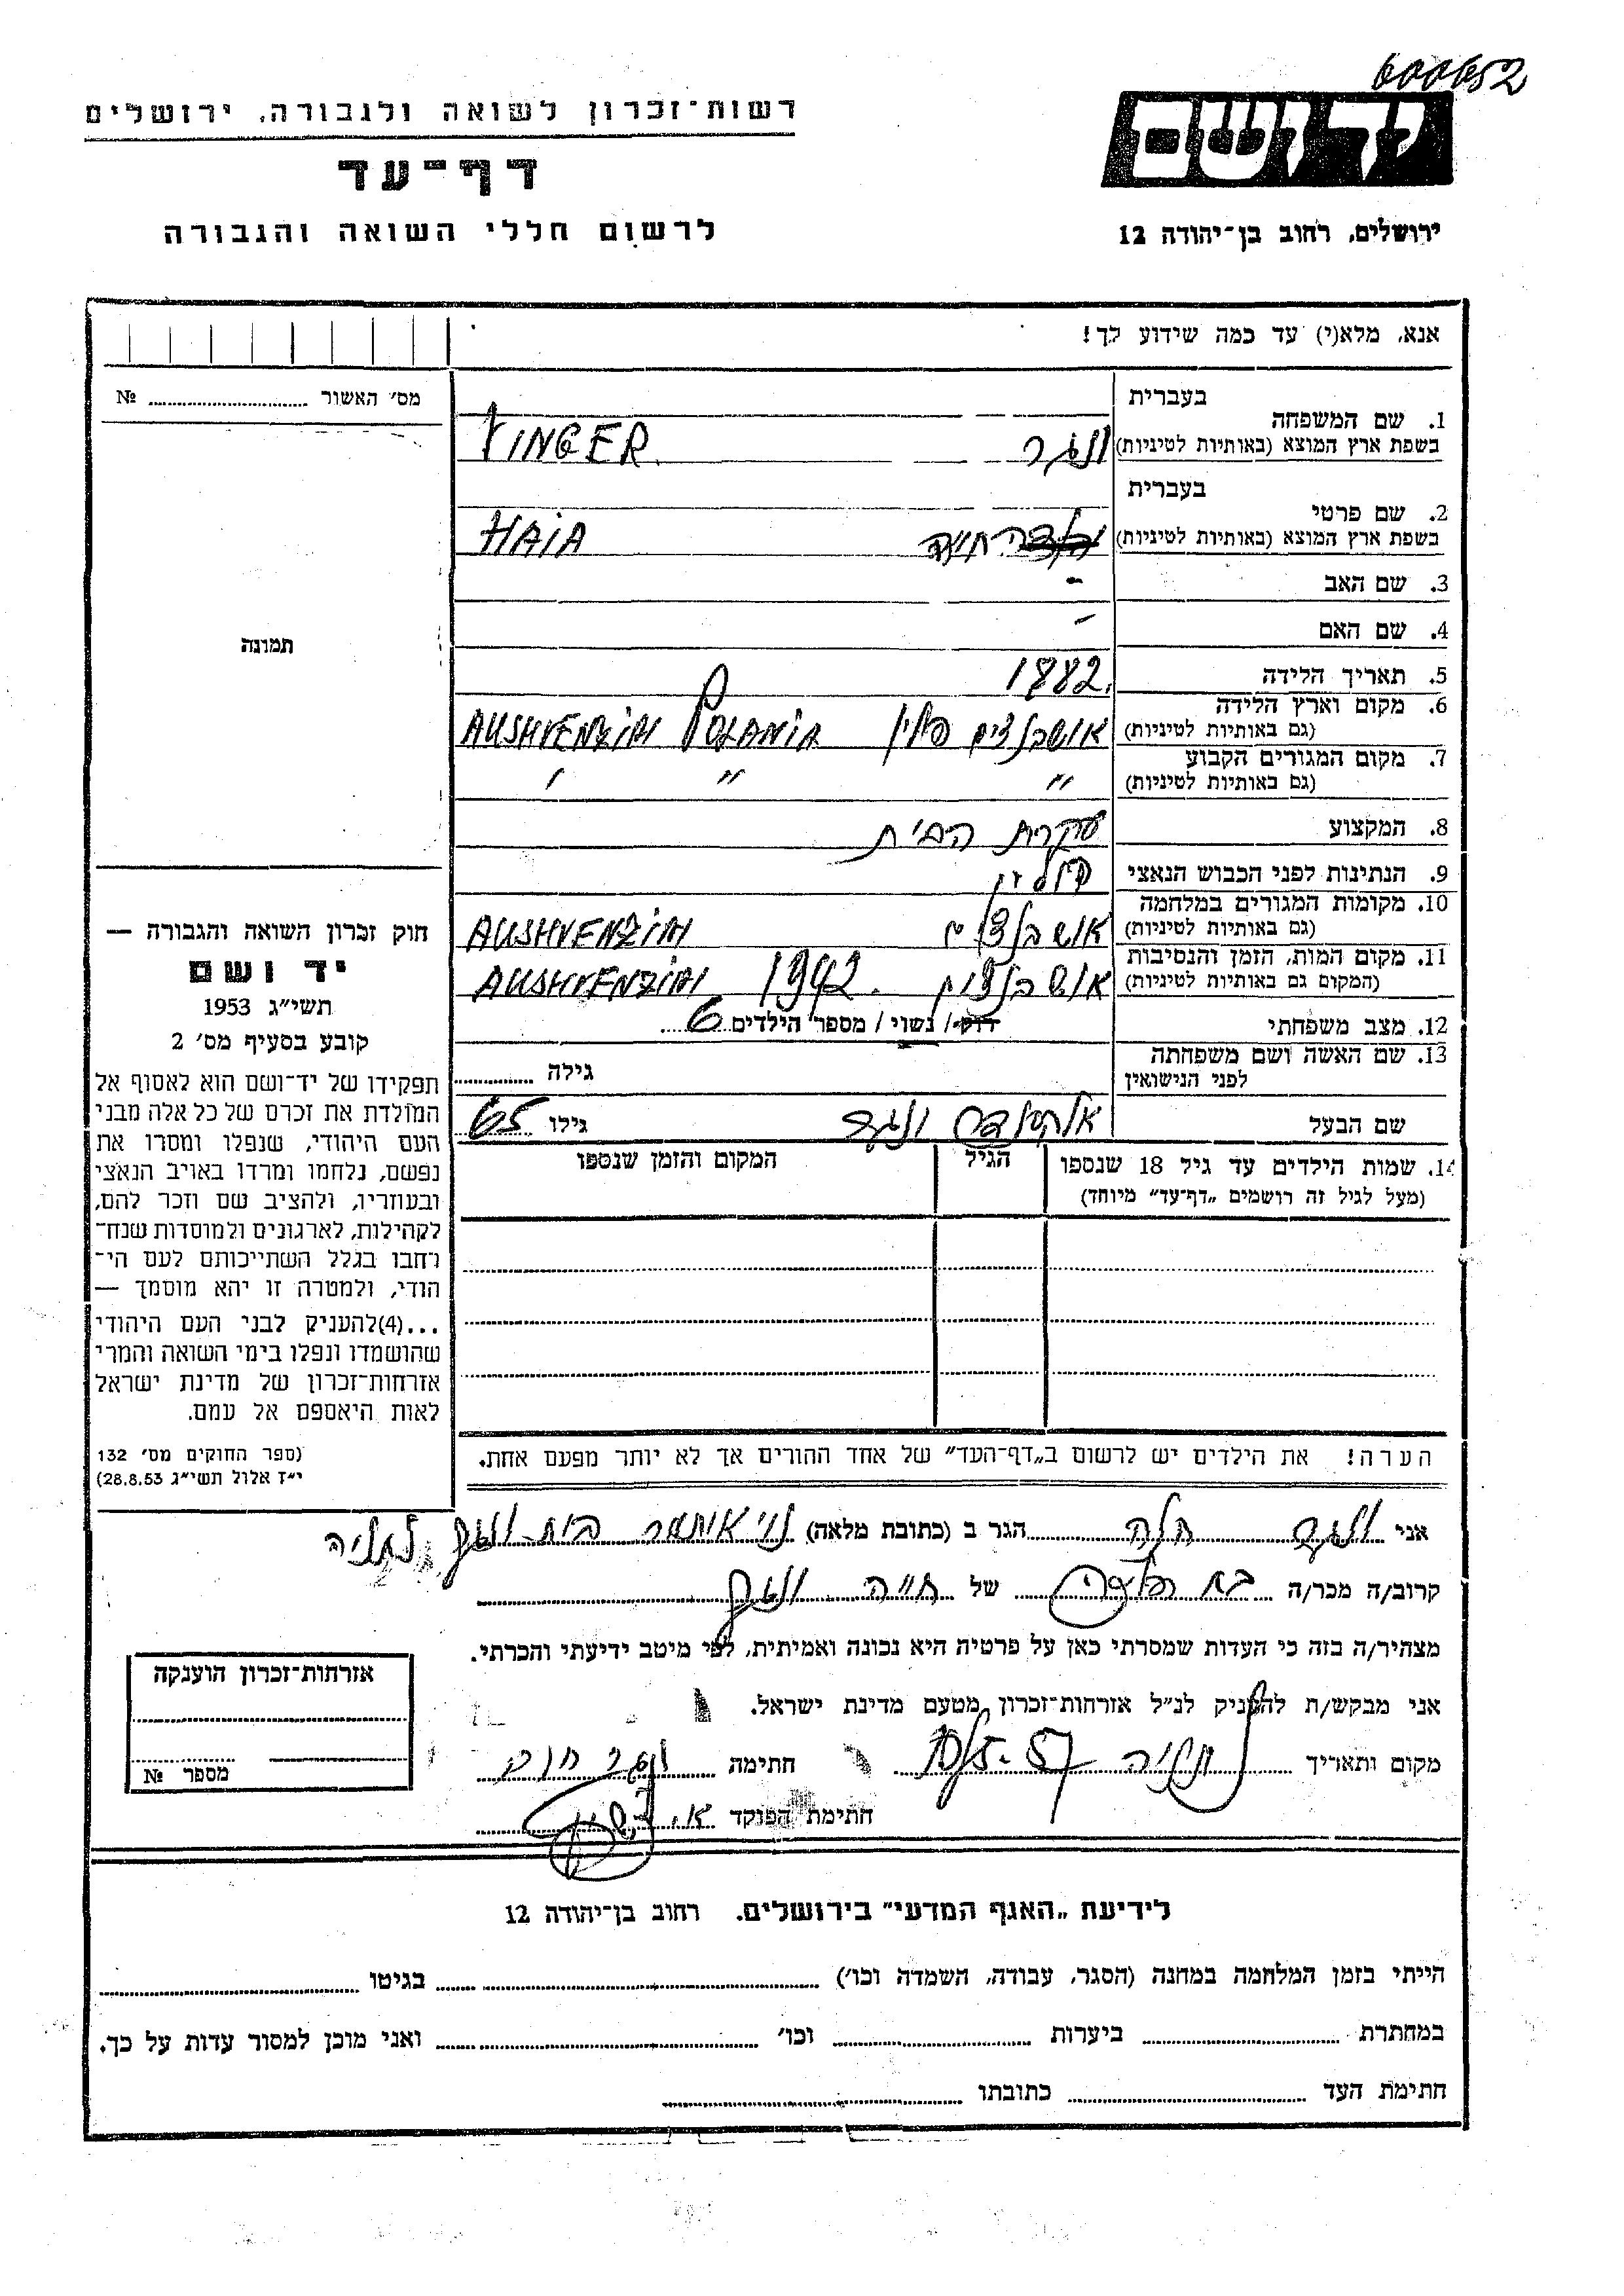 600652
רשות-זכרון לשואה ולגבורה, ירושלים
דף-עד
לרשום חללי השואה והגבורה
יד ושם
ירושלים, רחוב בן-יהודה 12
אנא, מלא(י) עד כמה שידוע לך!
מס׳ האשור № 
תמונה
חוק זכרון השואה והגבורה —
יד ושם
תשי״ג 1953
קובע בסעיף מס׳ 2
תפקידו של יד-ושם הוא לאסוף אל
המולדת את זכרם של כל אלה מבני
העם היהודי, שנפלו ומסרו את
נפשם, נלחמו ומרדו באויב הנאצי
ובעוזריו, ולהציב שם וזכר להם,
לקהילות, לארגונים ולמוסדות שנח-
רחבו בגלל השתייכותם לעם הי-
הודי, ולמטרה זו יהא מוסמך —
...(4)להעניק לבני העם היהודי
שהושמדו ונפלו בימי השואה והמרי
אזרחות-זכרון של מדינת ישראל
לאות היאספם אל עמם.
(ספר החוקים מס׳ 132
י״ז אלול תשי״ג 28.8.53)
בעברית
1. שם המשפחה
בשפת ארץ המוצא (באותיות לטיניות) ונגר VINGER
בעברית
2. שם פרטי
בשפת ארץ המוצא (באותיות לטיניות) חיה HAIA
3. שם האב -
4. שם האם -
5. תאריך הלידה 1882.
6. מקום וארץ הלידה
(גם באותיות לטיניות) אושבנצים פולין AUSHVENZIM POLANIA
7. מקום המגורים הקבוע
(גם באותיות לטיניות) " " "
8. המקצוע עקרת הבית
9. הנתינות לפני הכבוש הנאצי פולין
10. מקומות המגורים במלחמה
(גם באותיות לטיניות) אושבנצים AUSHVENZIM
11. מקום המות, הזמן והנסיבות
(המקום גם באותיות לטיניות) אושבנצים 1942. AUSHVENZIM
12. מצב משפחתי רווק / נשוי / מספר הילדים 6
13. שם האשה ושם משפחתה
לפני הנישואין גילה
שם הבעל אלכסנדר ונגר גילו 65
14. שמות הילדים עד גיל 18 שנספו הגיל המקום והזמן שנספו
(מעל לגיל זה רושמים „דף-עד״ מיוחד)
הערה! את הילדים יש לרשום ב„דף-העד״ של אחד ההורים אך לא יותר מפעם אחת.
אני ונגר הגר ב (כתובת מלאה) בית ונגר נתניה
קרוב/ה מכר/ה של חיה ונגר
מצהיר/ה בזה כי העדות שמסרתי כאן על פרטיה היא נכונה ואמיתית, לפי מיטב ידיעתי והכרתי.
אני מבקש/ת להעניק לנ״ל אזרחות-זכרון מטעם מדינת ישראל.
מקום ותאריך נתניה חתימה ונגר
חתימת הפוקד
אזרחות-זכרון הוענקה
מספר №
לידיעת „האגף המדעי״ בירושלים. רחוב בן-יהודה 12
הייתי בזמן המלחמה במחנה (הסגר, עבודה, השמדה וכו׳) בגיטו
במחתרת ביערות וכו׳ ואני מוכן למסור עדות על כך.
חתימת העד כתובתו